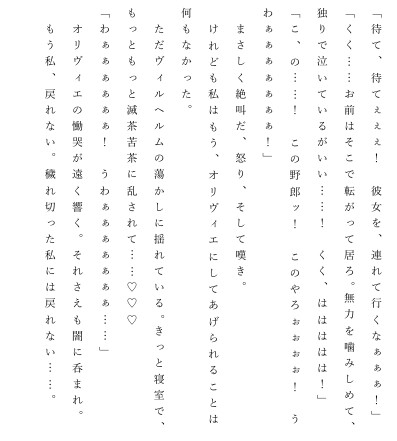 「待て、待てぇぇぇ！　彼女を、連れて行くなぁぁぁ！」
「くく……お前はそこで転がって居ろ。無力を噛みしめて、
独りで泣いているがいい……！　くく、はははははは！」
「こ、の……！　この野郎ッ！　このやろぉぉぉぉ！　う
わぁぁぁぁぁぁぁぁ！」
　まさしく絶叫だ、怒り、そして嘆き。
　けれども私はもう、オリヴィエにしてあげられることは
何もなかった。
　ただヴィルヘルムの蕩かしに揺れている。きっと寝室で、
もっともっと滅茶苦茶に乱されて……♡♡♡
「わぁぁぁぁぁぁぁ！　うわぁぁぁぁぁぁぁ……」
　オリヴィエの慟哭が遠く響く。それさえも闇に呑まれ。
　もう私、戻れない。穢れ切った私には戻れない……。